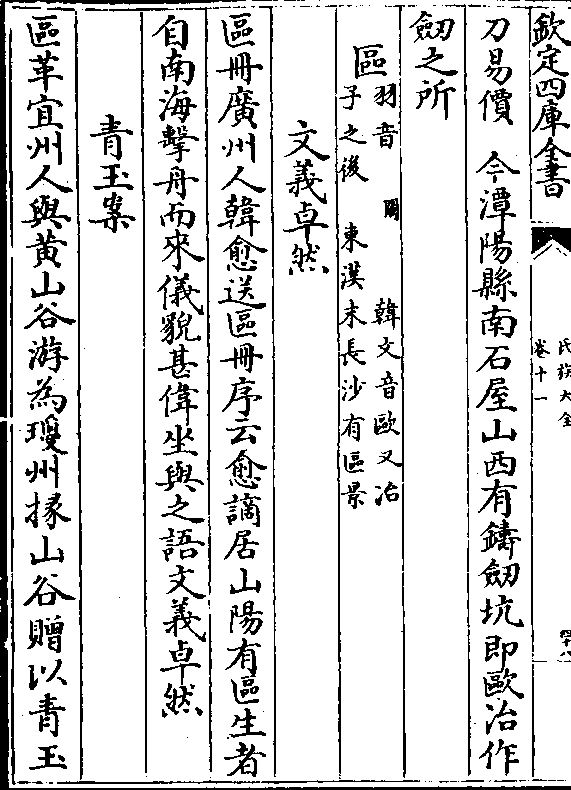 欽定四庫全書
氏族大全
卷十一
刀易價 今潭陽縣南石屋山西有鑄劔坑即歐冶作
劔之所
區
羽音 韓文音歐又冶
子之後 東漢末長沙有區景
文義卓然
區冊廣州人韓愈送區冊序云愈謫居山陽有區生者
自南海擊舟而來儀貌甚偉坐與之語文義卓然
青玉案
區革宜州人與黄山谷游為瓊州掾山谷贈以青玉